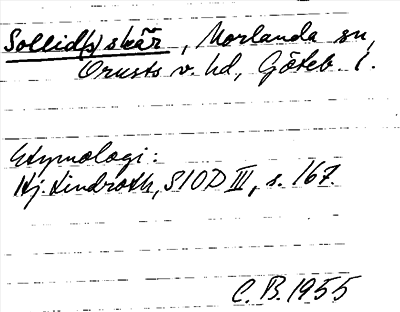 Sollid(s)skär, Morlanda sn,
Orusts v. hd, Göteb. l.
Etymologi:
Hj. Lindroth, SIOD III, s. 167.
C. B. 1955